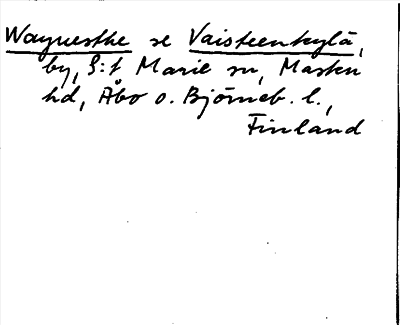 Wayuesthe se Vaisteenkylä,
by, S:t Marie sn, Masku
hd, Åbo o. Björneb. l.,
Finland